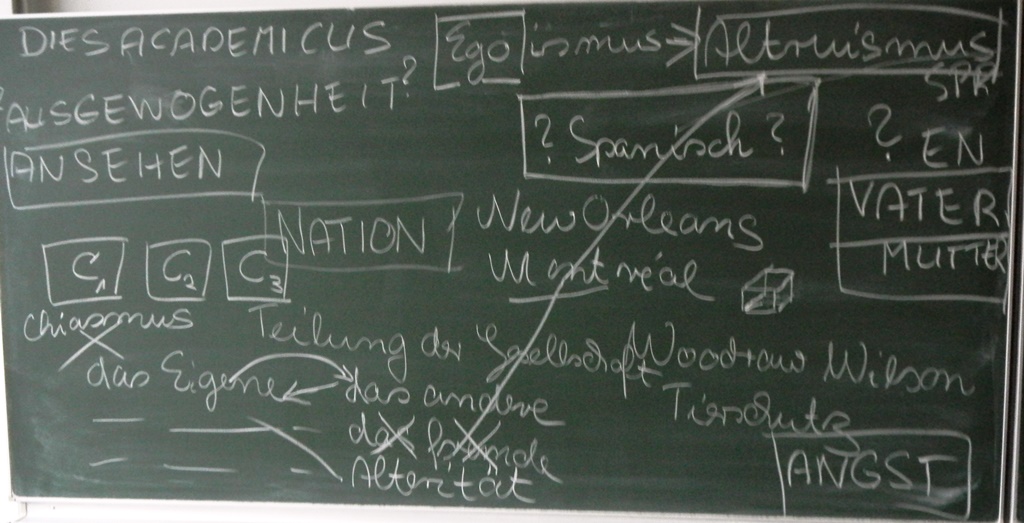 DIES ACADEMICUS
Egoismus → Altruismus
? AUSGEWOGENHEIT?
SPR
? Spanisch ?
? EN
ANSEHEN
VATER
NATION
New Orleans
MUTTER
Montréal
C1 C2 C3
Chiasmus
Teilung der Gesellschaft
Woodrow Wilson
das Eigene
das andere
Tierschutz
das fremde
Alterität
ANGST